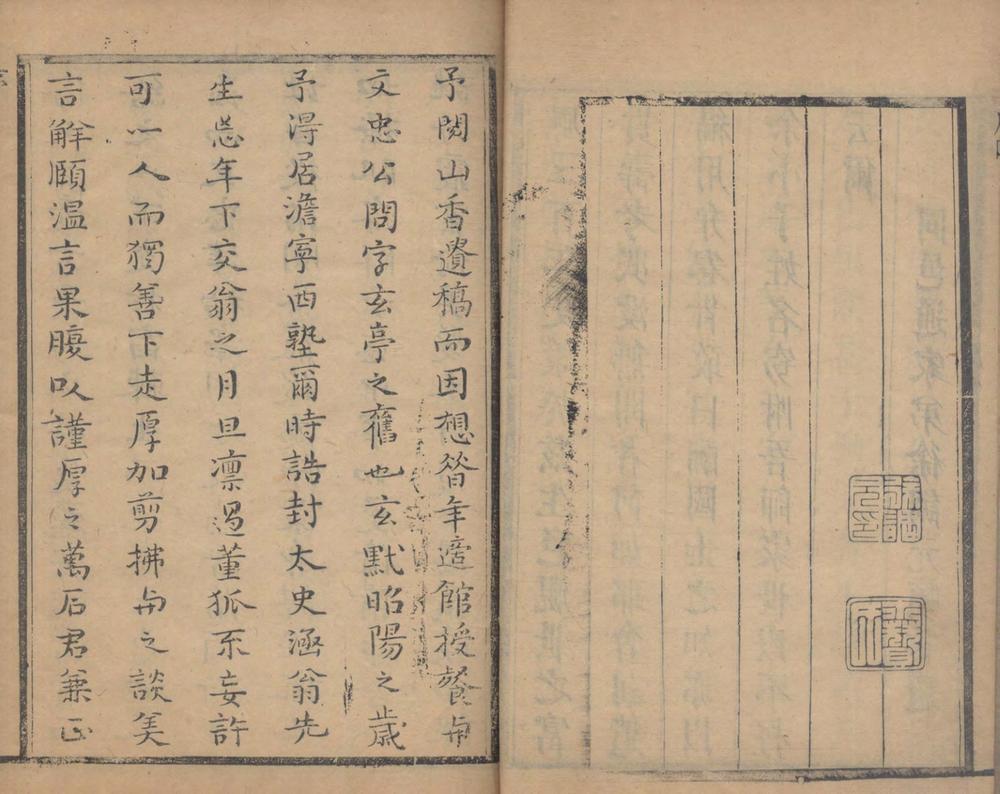 予閱山香遺稿而因想昝年適館授餐与
文忠公問字玄亭之舊也玄默昭陽之歲
予得居澹寧西塾爾時誥封太史涵翁先
生忘年下交翁之月旦凛過董狐不妄許
可一人而獨善下走厚加剪拂与之談美
言解頤溫言果腹以謹厚之萬石君兼正